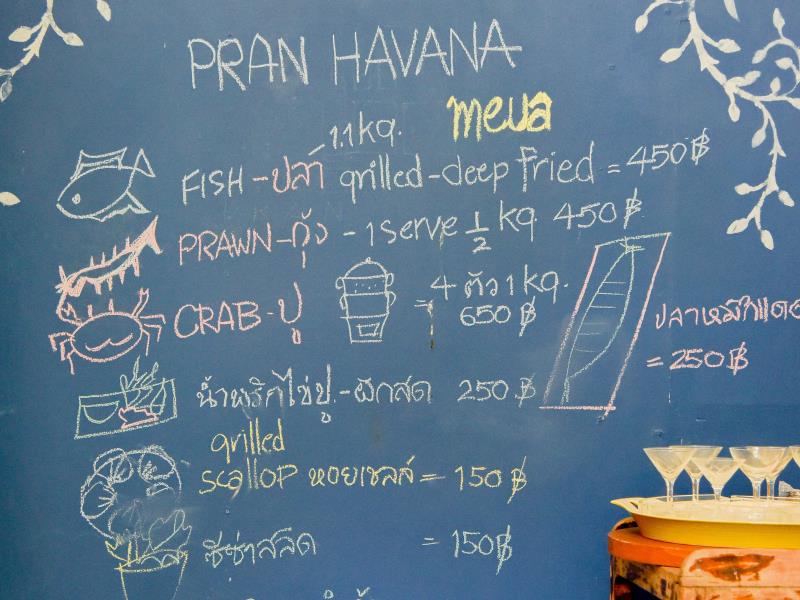 PRAN HAVANA
menu
1.1kg.
FISH-ปลา grilled-deep fried = 450 ฿
PRAWN-กุ้ง - 1 serve 1/2 kg. 450 ฿
CRAB-ปู = 4 ตัว 1 kg.
650 ฿
ปลาหมึกแดด
= 250 ฿
น้ำพริกไข่ปู.-ผักสด 250 ฿
grilled
scallop หอยเชลล์ = 150 ฿
ซีซ่าสลัด = 150 ฿